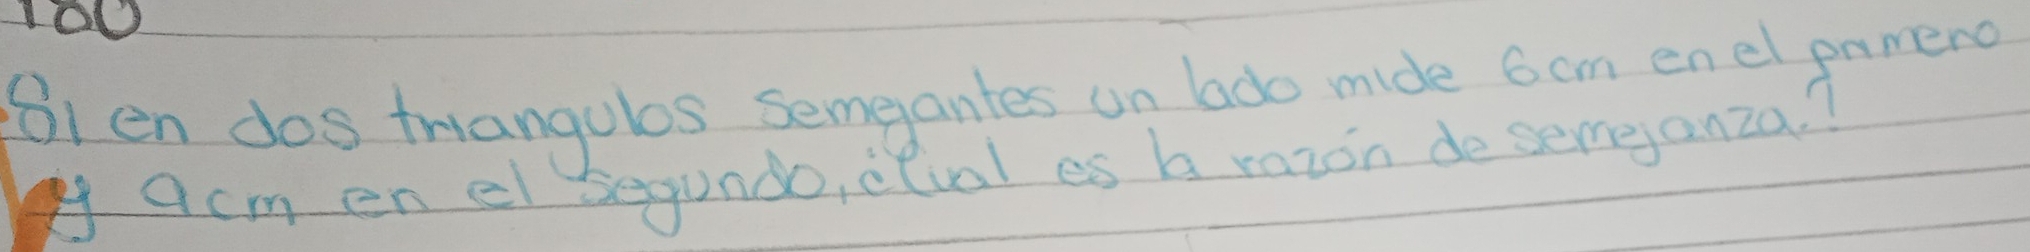 100
Si en dos triangulos semejantes un lado mide 6cm en el primero
y 9cm en el segundo, ¿Cual es la razón de semejanza.?